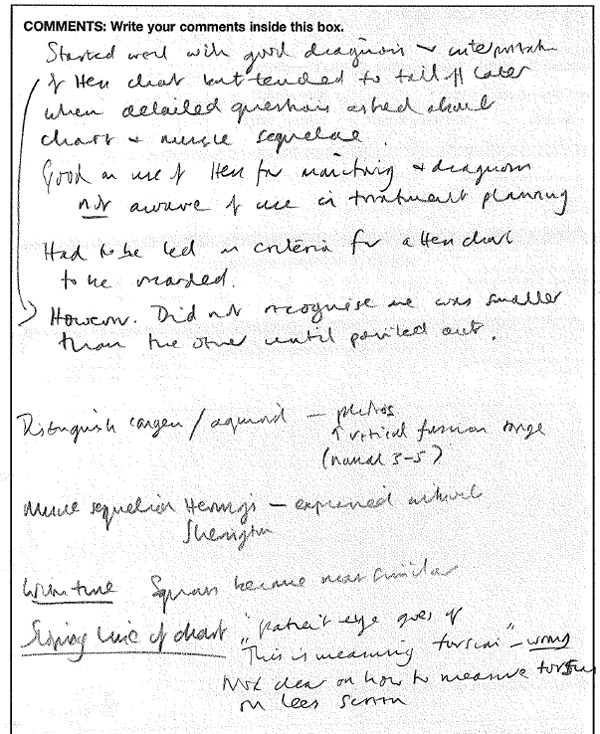 COMMENTS: Write your comments inside this box.
Started well with good diagnosis + interpretation
of Hess chart but tended to tail off later
when detailed questions asked about
chart + muscle sequelae.
Good on use of Hess for monitoring + diagnosis
not aware of use in treatment planning
Had to be led on criteria for a Hess chart
to be recorded.
However. Did not recognise one was smaller
than the other until pointed out.
Distinguish congen / aquired — photos
↑ vertical fusion range
(normal 3-5)
Muscle sequelae Herrings — explained
Sherrington
With time Squares become more similar
Sloping line of chart "patient eye goes
This is measuring torsion" — wrong
Not clear on how to measure torsion
on Lees screen